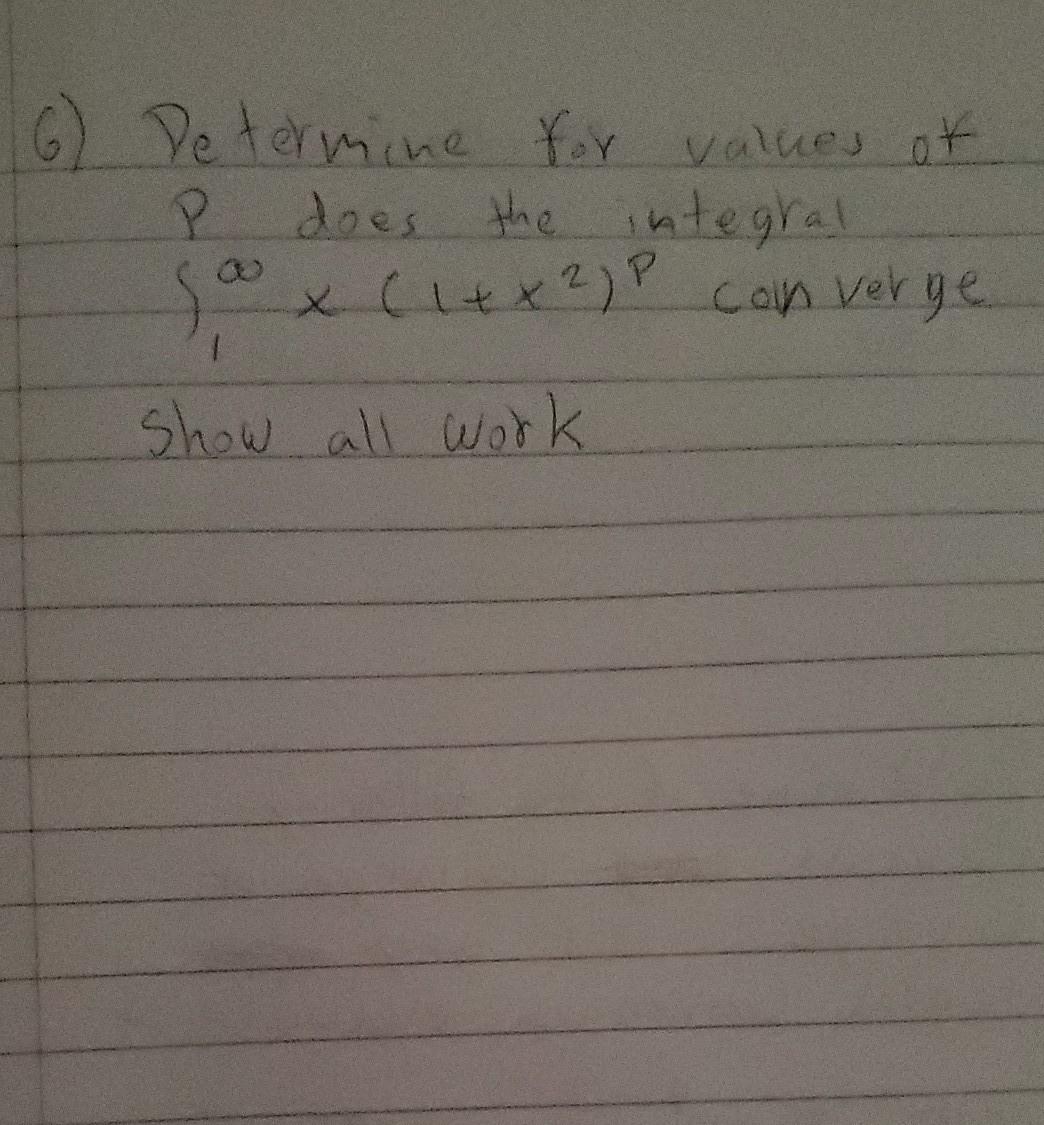 6) Determine for values of
P does the integral
∫₁^∞ x (1+x²)^P converge
Show all work